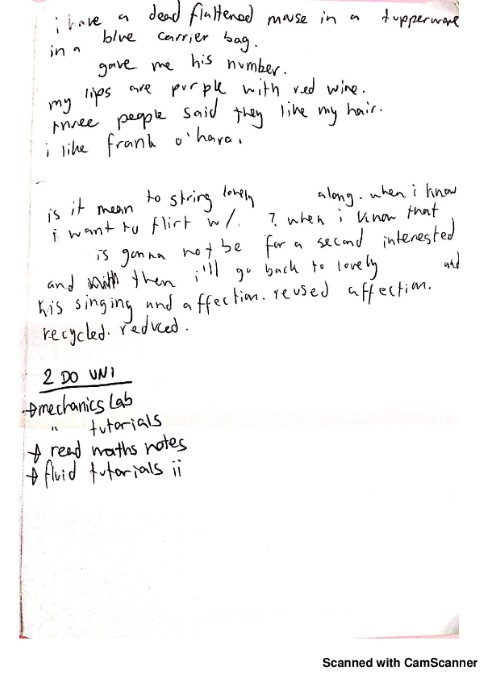 i have a dead flattened mouse in a tupperware
in a blue carrier bag.
gave me his number.
my lips are purple with red wine.
three people said they like my hair.
i like frank o'hara.
is it mean to string lovely along. when i know
i want to flirt w/. ? when i know that
is gonna not be for a second interested
and then i'll go back to lovely and
his singing and affection. reused affection.
recycled. reduced.
2 DO UNI
→ mechanics Lab
" tutorials
→ read maths notes
→ fluid tutorials ii
Scanned with CamScanner